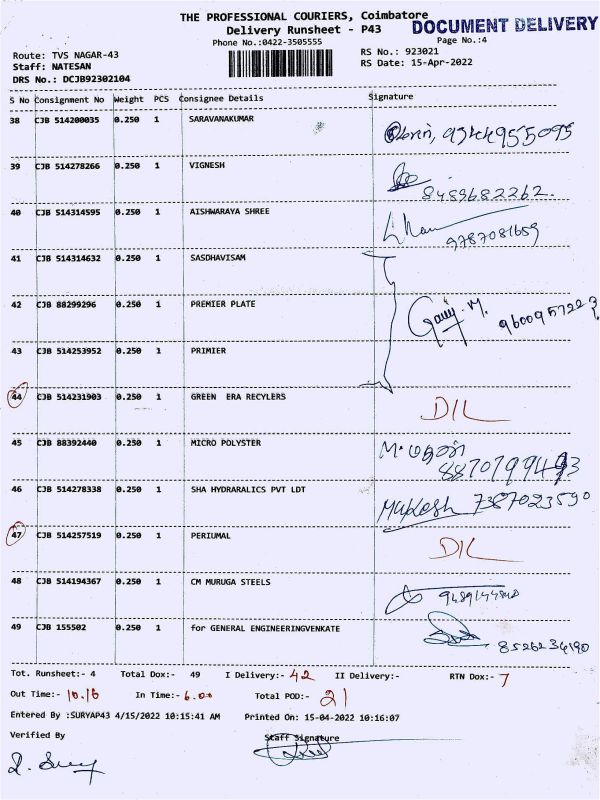 THE PROFESSIONAL COURIERS, Coimbatore
Delivery Runsheet - P43
DOCUMENT DELIVERY
Phone No.:0422-3505555
Page No.:4
Route: TVS NAGAR-43
RS No.: 923021
Staff: NATESAN
RS Date: 15-Apr-2022
DRS No.: DCJB92302104
S No Consignment No Weight PCS Consignee Details Signature
38 CJB 514200035 0.250 1 SARAVANAKUMAR
39 CJB 514278266 0.250 1 VIGNESH
8489682262.
40 CJB 514314595 0.250 1 AISHWARAYA SHREE
9787081659
41 CJB 514314632 0.250 1 SASDHAVISAM
42 CJB 88299296 0.250 1 PREMIER PLATE
43 CJB 514253952 0.250 1 PRIMIER
44 CJB 514231903 0.250 1 GREEN ERA RECYLERS D/L
45 CJB 88392440 0.250 1 MICRO POLYSTER
46 CJB 514278338 0.250 1 SHA HYDRARALICS PVT LDT Mukesh 7387023590
47 CJB 514257519 0.250 1 PERIUMAL D/L
48 CJB 514194367 0.250 1 CM MURUGA STEELS
49 CJB 155502 0.250 1 for GENERAL ENGINEERINGVENKATE
8526234190
Tot. Runsheet:- 4 Total Dox:- 49 I Delivery:- 42 II Delivery:- RTN Dox:- 7
Out Time:- 10.16 In Time:- 6.00 Total POD:- 21
Entered By :SURYAP43 4/15/2022 10:15:41 AM Printed On: 15-04-2022 10:16:07
Verified By Staff Signature